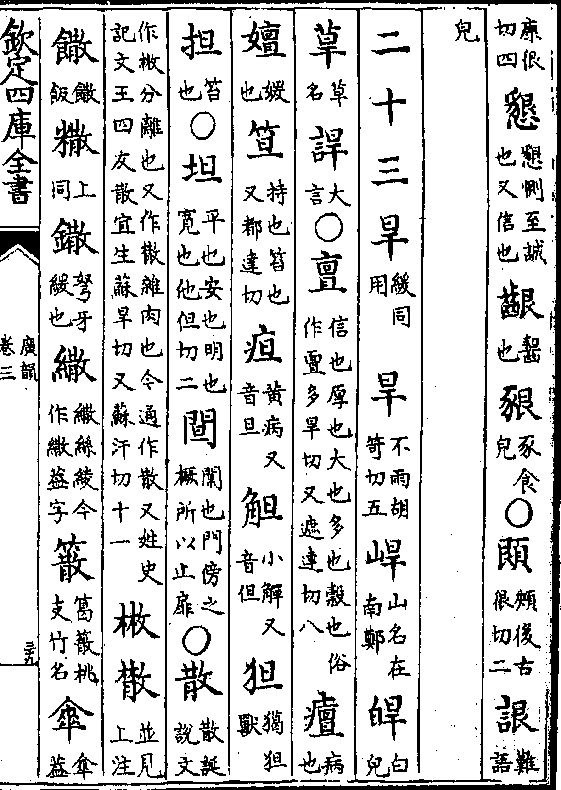 康佷切四懇懇惻至誠也又信也齦齧也豤豕食皃〇頣頰後古佷切二詪難語
皃
二十三旱緩同用旱不雨胡笴切五山名在南鄭皔白皃
䓍草名大言〇亶信也厚也大也多也榖也俗作多旱切又遮連切八病也
嬗媛也笪持也笞也又都達切疸黄病又音旦觛小觶又音但狚獦狚獸
担笞也〇坦平也安也明也寛也他但切二闌也門傍之橛所以止扉〇散散誕說文
作㪔分離也又作㪚雜肉也今通作散又姓史記文王四友散宜生蘇旱切又蘇汗切十一㪔㪚並見上注
饊饊飯糤上同鏾弩牙緩也繖繖絲綾今作繖葢字桃支竹名傘傘葢
欽定四庫全書
廣韻
卷三